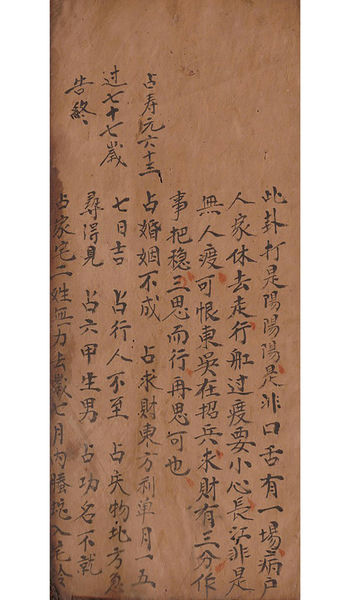 此卦打是陽陽陽是非口舌有一場病户
人家休去走行舡过渡要小心長江非是
無人渡可恨東吳在招兵求財有三分作
事把穩三思而行再思可也
占寿元六十三
过七十七歲
告終
占婚姻不成 占求財東方利单月一五
七日吉 占行人不至 占失物北方
尋得見 占六甲生男 占功名不就
占家宅二姓 力去歲七月内螣蛇入宅令